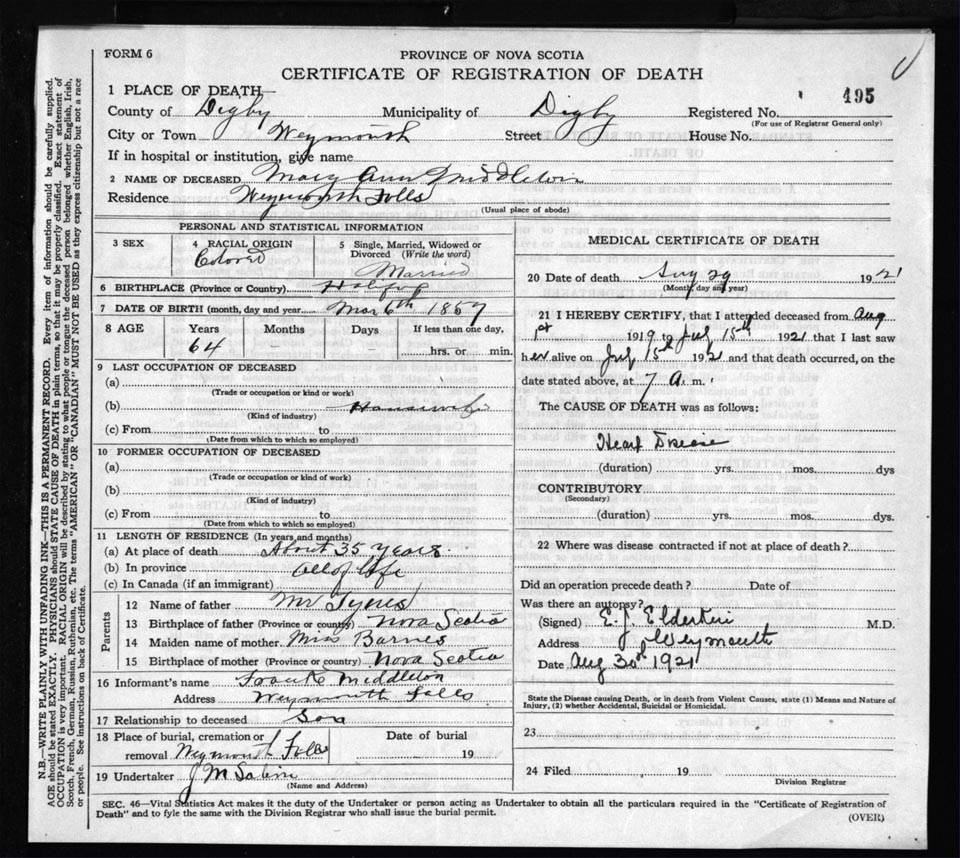 FORM 6
PROVINCE OF NOVA SCOTIA
CERTIFICATE OF REGISTRATION OF DEATH
495
1 PLACE OF DEATH—
County of Digby Municipality of Digby Registered No.
(For use of Registrar General only)
City or Town Weymouth Street House No.
If in hospital or institution, give name
2 NAME OF DECEASED Mary Ann Middleton
Residence Weymouth Falls
(Usual place of abode)
PERSONAL AND STATISTICAL INFORMATION
3 SEX
4 RACIAL ORIGIN
Colored
5 Single, Married, Widowed or
Divorced (Write the word)
Married
6 BIRTHPLACE (Province or Country) Halifax
7 DATE OF BIRTH (month, day and year) Mar 6th 1857
8 AGE Years Months Days If less than one day,
64 hrs. or min.
9 LAST OCCUPATION OF DECEASED
(a)
(Trade or occupation or kind or work)
(b) Housewife
(Kind of industry)
(c) From to
(Date from which to which so employed)
10 FORMER OCCUPATION OF DECEASED
(a)
(Trade or occupation or kind or work)
(b)
(Kind of industry)
(c) From to
(Date from which to which so employed)
11 LENGTH OF RESIDENCE (In years and months)
(a) At place of death About 35 years
(b) In province all of life
(c) In Canada (if an immigrant)
Parents
12 Name of father Mr Tynes
13 Birthplace of father (Province or country) Nova Scotia
14 Maiden name of mother Miss Barnes
15 Birthplace of mother (Province or country) Nova Scotia
16 Informant's name Frank Middleton
Address Weymouth Falls
17 Relationship to deceased Son
18 Place of burial, cremation or Date of burial
removal Weymouth Falls 19
19 Undertaker J M Sabin
(Name and Address)
MEDICAL CERTIFICATE OF DEATH
20 Date of death Aug 29 1921
(Month, day and year)
21 I HEREBY CERTIFY, that I attended deceased from Aug
1st 1919 to July 15th 1921 that I last saw
her alive on July 15th 1921 and that death occurred, on the
date stated above, at 7 A. m.
The CAUSE OF DEATH was as follows:
Heart Disease
(duration) yrs. mos. dys
CONTRIBUTORY
(Secondary)
(duration) yrs. mos. dys.
22 Where was disease contracted if not at place of death?
Did an operation precede death? Date of
Was there an autopsy?
(Signed) E. J. Elderkin M.D.
Address Weymouth
Date Aug 30th 1921
State the Disease causing Death, or in death from Violent Causes, state (1) Means and Nature of
Injury, (2) whether Accidental, Suicidal or Homicidal.
23
24 Filed 19
Division Registrar
SEC. 46—Vital Statistics Act makes it the duty of the Undertaker or person acting as Undertaker to obtain all the particulars required in the "Certificate of Registration of
Death" and to fyle the same with the Division Registrar who shall issue the burial permit.
(OVER)
N.B.—WRITE PLAINLY WITH UNFADING INK—THIS IS A PERMANENT RECORD. Every item of information should be carefully supplied.
AGE should be stated EXACTLY. PHYSICIANS should STATE CAUSE OF DEATH in plain terms, so that it may be properly classified. Exact statement of
OCCUPATION is very important. RACIAL ORIGIN will be described by stating to what people or tongue the deceased person belonged whether English, Irish,
Scotch, French, German, Russian, Ruthenian, etc. The terms "AMERICAN" OR "CANADIAN" MUST NOT BE USED as they express citizenship but not a race
or people. See instructions on back of Certificate.